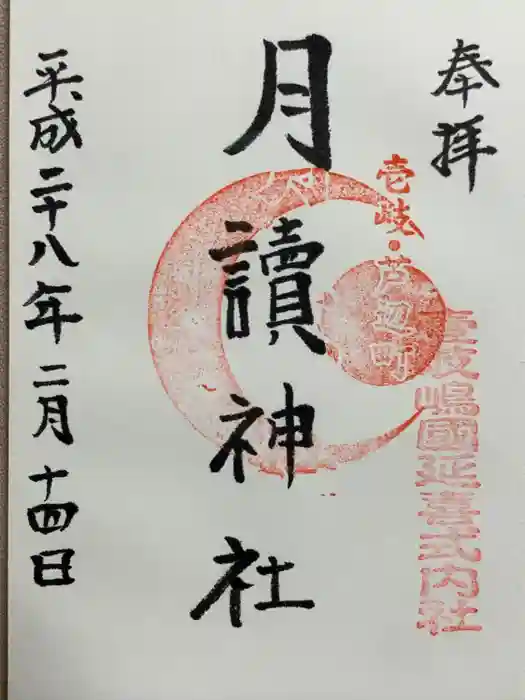 奉拝
壱岐・芦辺町
壱岐嶋國延喜式内社
月讀神社
平成二十八年二月十四日